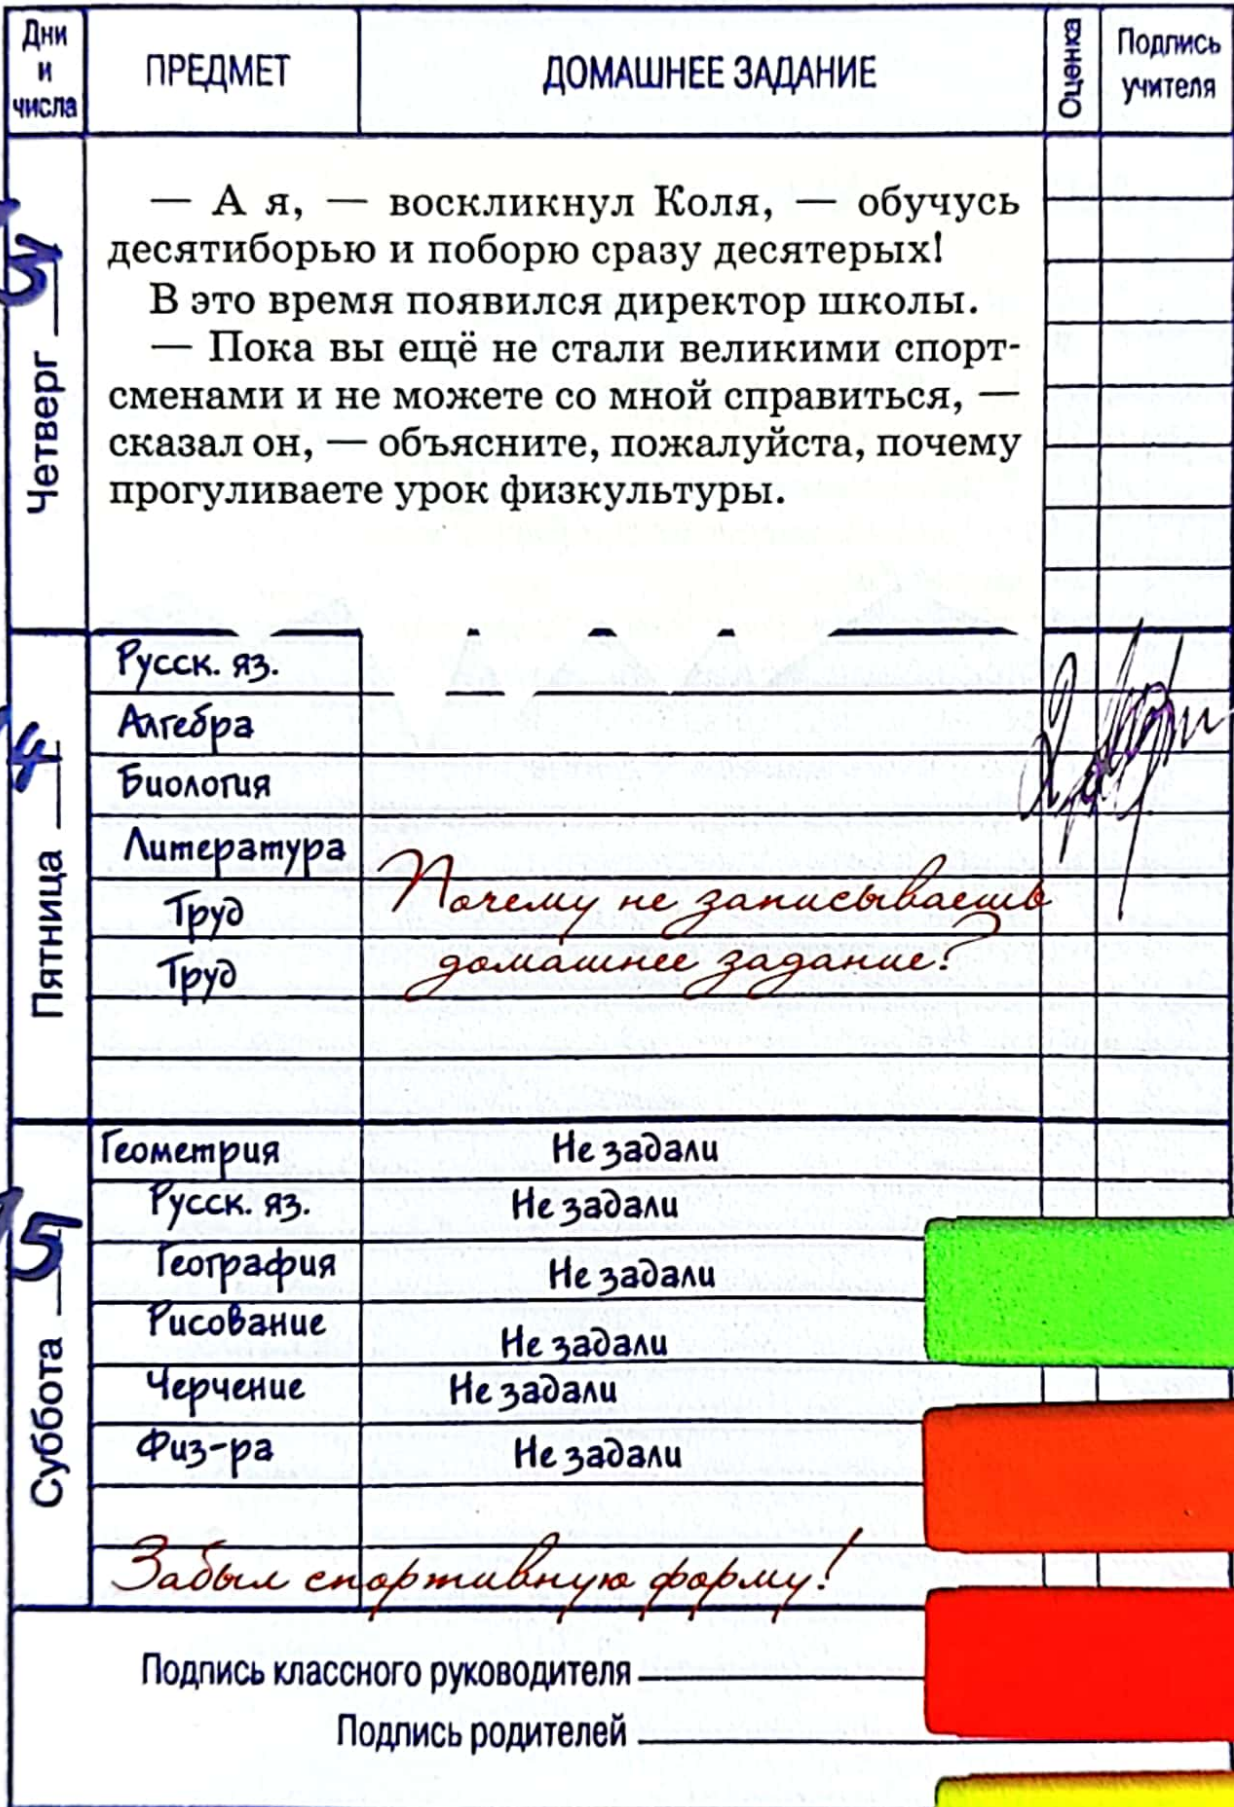 Дни и числа
ПРЕДМЕТ
ДОМАШНЕЕ ЗАДАНИЕ
Оценка
Подпись учителя
Четверг
— А я, — воскликнул Коля, — обучусь
десятиборью и поборю сразу десятерых!
В это время появился директор школы.
— Пока вы ещё не стали великими спорт-
сменами и не можете со мной справиться, —
сказал он, — объясните, пожалуйста, почему
прогуливаете урок физкультуры.
Пятница
Русск. яз.
Алгебра
Биология
Литература
Труд Почему не записываешь
Труд домашнее задание?
Суббота
Геометрия Не задали
Русск. яз. Не задали
География Не задали
Рисование Не задали
Черчение Не задали
Физ-ра Не задали
Забыл спортивную форму!
Подпись классного руководителя
Подпись родителей